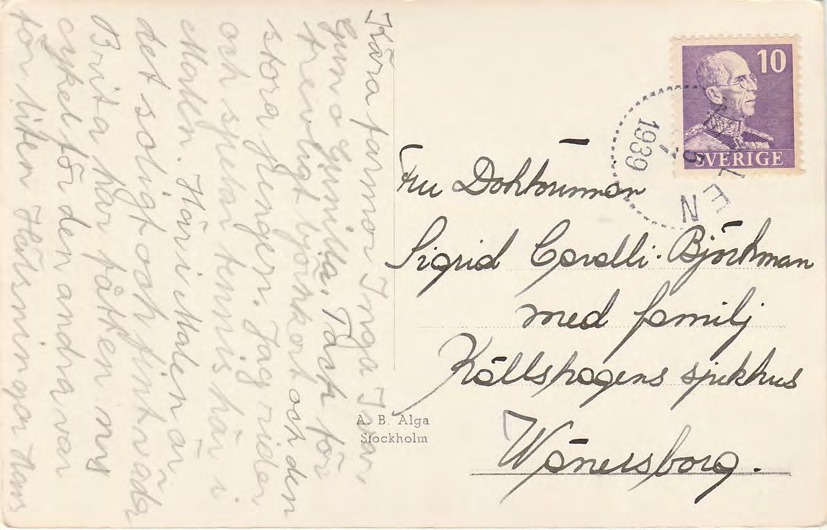 Kära farmor Inga Ivar,
Gun o Gunilla. Tack för
trevligt kort och den
stora pengen. Jag rider
och spelar tennis här i
Malen. Här i Malen är
det soligt och fint väder
Brita har fått en ny
cykel för den andra var
för liten Hälsningar
10
SVERIGE
1939
Fru Doktorinnan
Sigrid Cavalli-Björkman
med familj
Källshagens sjukhus
Wänersborg.
A. B. Alga
Stockholm